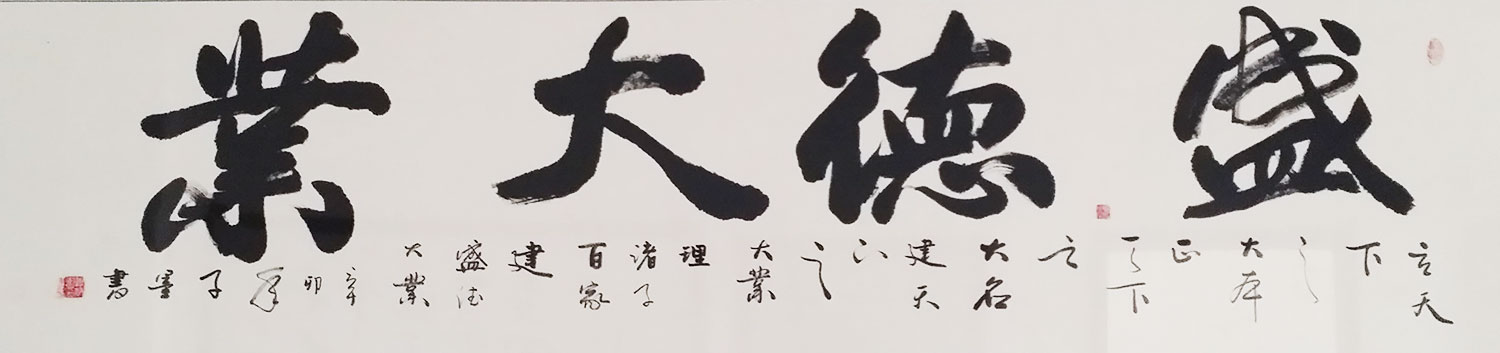 盛德大業
立天
下
之
大本
正
天下
之
大名
建天
下
之
大業
理
诸子
百家
建
盛德
大業
辛
卯
年
子
墨
書